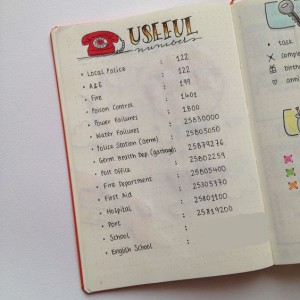 USEFUL
numbers
• Local Police : 122
• A&E : 122
• Fire : 199
• Poison Control : 1401
• Power Failures : 1800
• Water Failures : 25830000
• Police Station (Germ) : 25805050
• Germ. Health Dep (garbage) : 25879276
• Post Office : 25802259
• Fire Department : 25805400
• First Aid : 25305770
• Hospital : 25801100
• Port : 25819200
• School :
• English School :
task
comple
birthd
anni